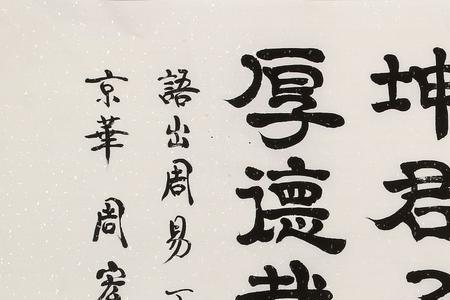 坤君
厚德載
語出周易
京華 周